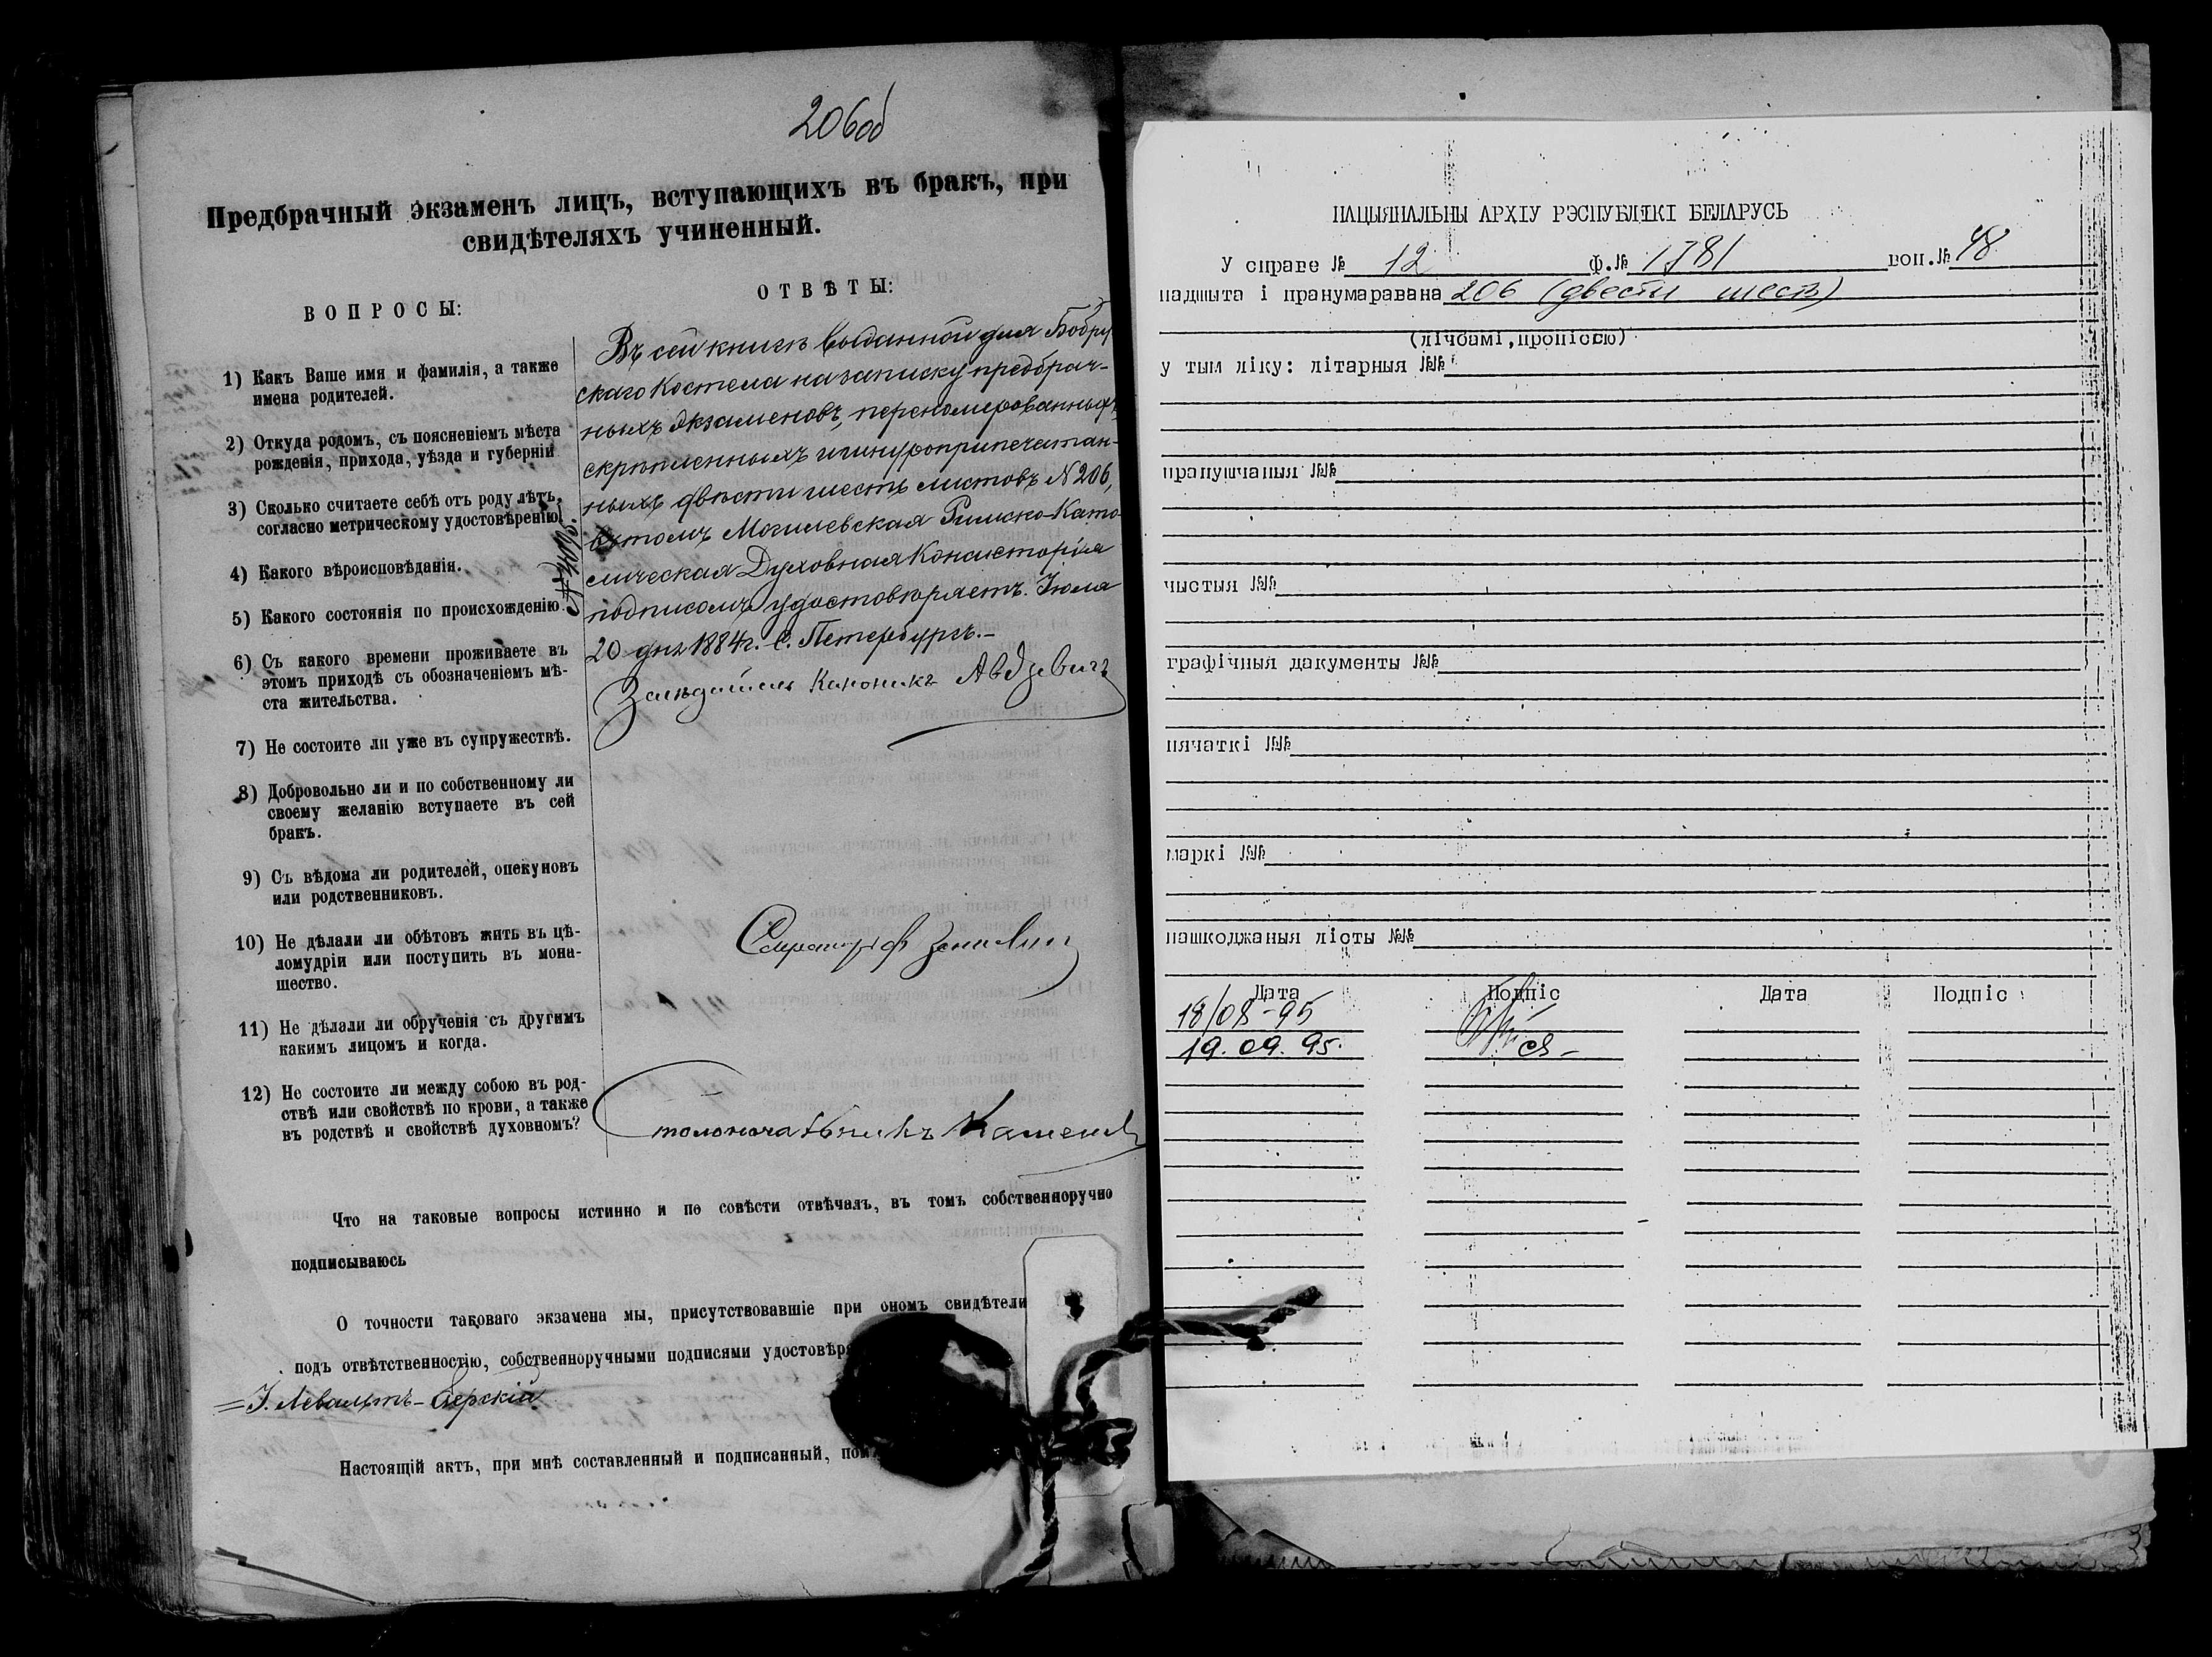 206об
Предбрачный экзаменъ лицъ, вступающихъ въ бракъ, при
свидѣтеляхъ учиненный.
ВОПРОСЫ:
1) Какъ Ваше имя и фамилія, а также
имена родителей.
2) Откуда родомъ, съ поясненіемъ мѣста
рожденія, прихода, уѣзда и губерніи
3) Сколько считаете себѣ отъ роду лѣтъ,
согласно метрическому удостовѣренію
4) Какого вѣроисповѣданія.
5) Какого состоянія по происхожденію
6) Съ какого времени проживаете въ
этомъ приходѣ съ обозначеніемъ мѣ-
ста жительства.
7) Не состоите ли уже въ супружествѣ.
8) Добровольно ли и по собственному ли
своему желанію вступаете въ сей
бракъ.
9) Съ вѣдома ли родителей, опекуновъ
или родственниковъ.
10) Не дѣлали ли обѣтовъ жить въ цѣ-
ломудріи или поступить въ мона-
шество.
11) Не дѣлали ли обрученія съ другимъ
какимъ лицомъ и когда.
12) Не состоите ли между собою въ род-
ствѣ или свойствѣ по крови, а также
въ родствѣ и свойствѣ духовномъ?
ОТВѢТЫ:
Въ сей книгѣ выданной для Бобруй
скаго Костела на записку предбрач-
ныхъ экзаменовъ, перенумерованныхъ,
скрѣпленныхъ и шнуроприпечатан-
ныхъ двѣсти шесть листовъ №206,
въ томъ Могилевская Римско-Като-
лическая Духовная Консисторія
подписомъ удостовѣряетъ. Іюля
20 дня 1884г. С. Петербургъ.-
Засѣдатель Каноникъ Авдзевичъ
Секретарь
Столоначальникъ
Что на таковые вопросы истинно и по совѣсти отвѣчалъ, въ томъ собственноручно
подписываюсь
О точности таковаго экзамена мы, присутствовавшіе при ономъ свидѣтели
подъ отвѣтственностію, собственноручными подписями удостовѣря
=І. Левальтъ-Езерскій
Настоящій актъ, при мнѣ составленный и подписанный, пом
НАЦЫЯНАЛЬНЫ АРХІУ РЭСПУБЛІКІ БЕЛАРУСЬ
У справе № 12 Ф.№ 1781 воп.№ 48
падшыта і пранумаравана 206 (двести шесть)
(лічбамі, пропіссю)
у тым ліку: літарныя №№
прапушчаныя №№
чыстыя №№
графічныя дакументы №№
пячаткі №№
маркі №№
пашкоджаныя лісты №№
Дата Подпіс Дата Подпіс
18/08-95
19.09.95.